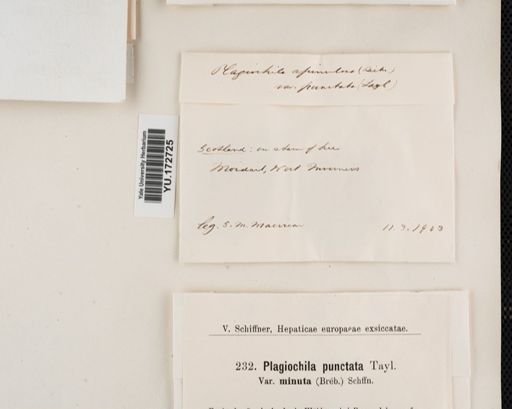 Plagiochila spinulosa (Dicks.)
var. punctata (Tayl.)
Yale University Herbarium
YU.172725
Scotland: on stem of tree
Moidart, West Inverness
Leg. S. M. Macvicar 11.3.1903
V. Schiffner, Hepaticae europaeae exsiccatae.
232. Plagiochila punctata Tayl.
Var. minuta (Bréb.) Schffn.